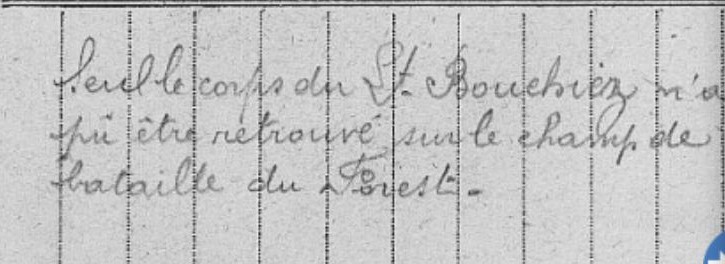 Seul le corps du Lt. Bouchiez n'a
pû être retrouvé sur le champ de
bataille du Forest.